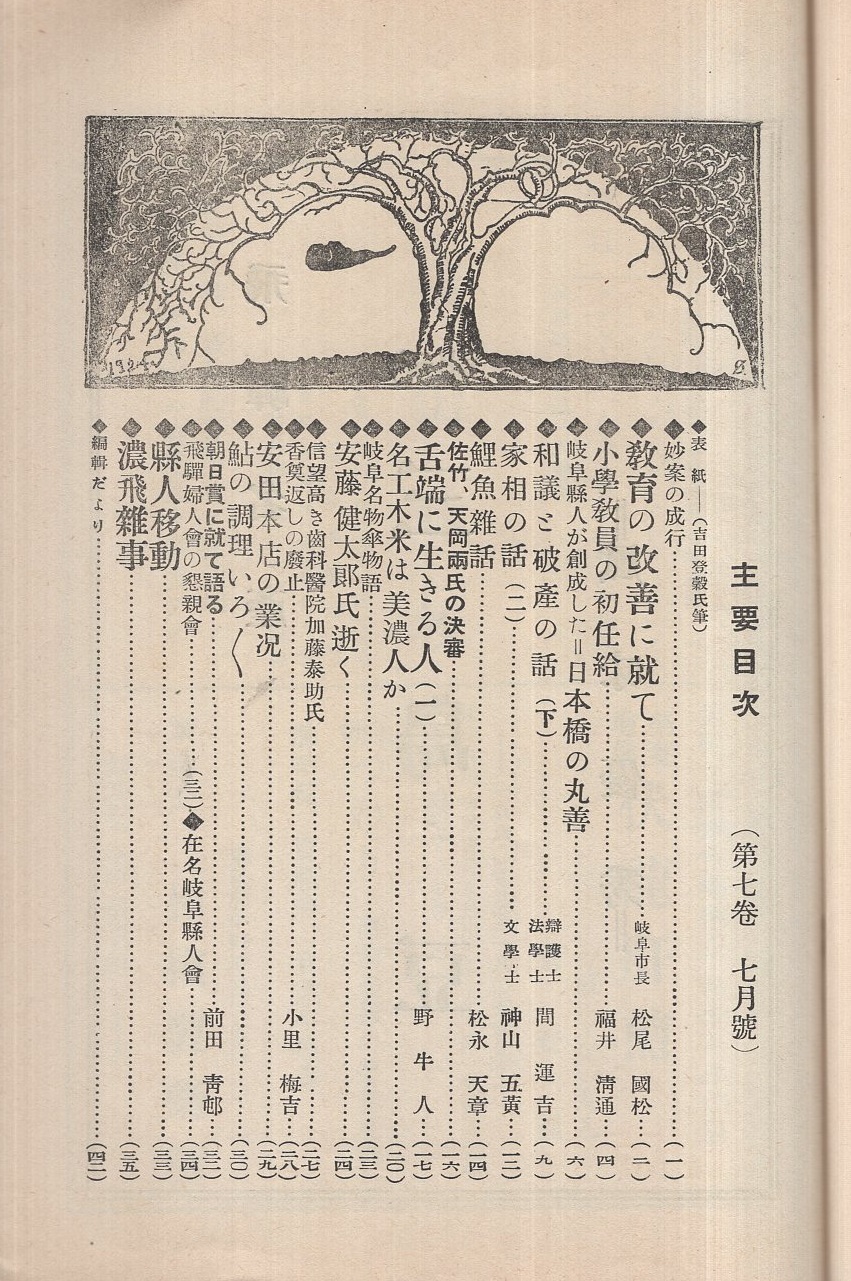 1924
S.
主要目次　（第七卷　七月號）
◆表紙――（吉田登穀氏筆）
◆妙案の成行……（一）
◆教育の改善に就て……岐阜市長　松尾國松……（二）
◆小學教員の初任給……福井清通……（四）
◆岐阜縣人が創成した＝日本橋の丸善……（六）
◆和議と破產の話（下）……辯護士 法學士　間運吉……（九）
◆家相の話（二）……文學士　神山五黃……（一二）
◆鯉魚雜話……松永天章……（一四）
◆佐竹、天岡兩氏の決審……（一六）
◆舌端に生きる人（一）……野牛人……（一七）
◆名工木米は美濃人か……（二〇）
◆岐阜名物傘物語……（二三）
◆安藤健太郞氏逝く……（二四）
◆信望高き齒科醫院加藤泰助氏……（二七）
◆香奠返しの廢止……小里梅吉……（二八）
◆安田本店の業況……（二九）
◆鮎の調理いろ〱……（三〇）
◆朝日賞に就て語る……前田靑邨……（三二）
◆飛驒婦人會の懇親會……（三二）◆在名岐阜縣人會……（三四）
◆縣人移動……（三三）
◆濃飛雜事……（三五）
◆編輯だより……（四二）